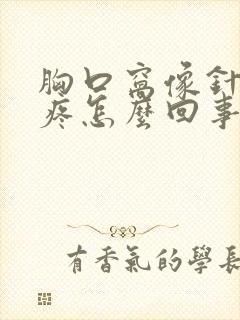 胸口窩像針
疼怎麼回事
有香氣的學長